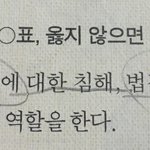 ○표, 옳지 않으면
에 대한 침해, 법
역할을 한다.